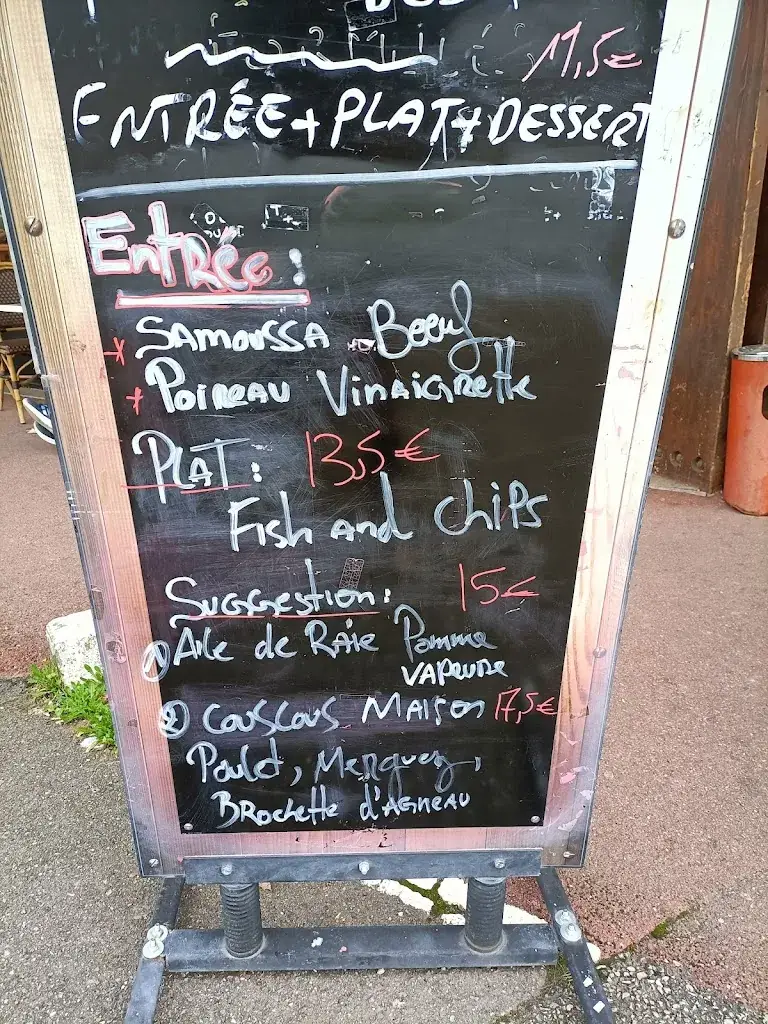 11,5€
ENTRÉE+PLAT+DESSERT
Entrée:
* SAMOUSSA Boeuf
* Poireau Vinaigrette
PLAT: 13,5€
Fish and chips
Suggestion: 15€
1 Aile de Raie Pomme
VAPEURE
2 COUSCOUS MAISON 17,5€
Poulet, Merguez,
Brochette d'AGNEAU